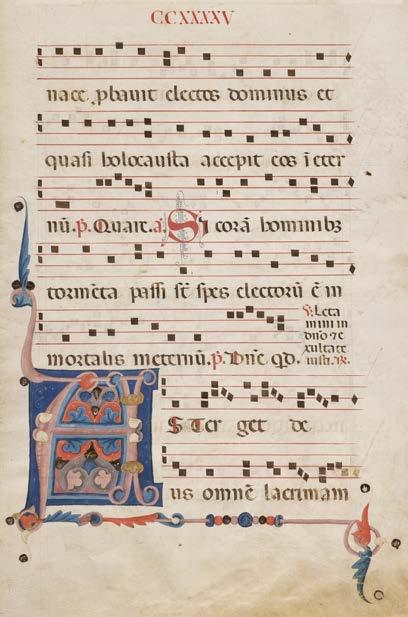 CCXXXXV
nace probavit electos dominus et
quasi holocausta accepit eos ī eter
nū. p̄. Quare. a. Si corā hominibz
tormēta passi sc̄ spes electorū ē in
mortalis in eternū. p̄. Dn̄e qd.
℣. Leta
mini in
dn̄o ⁊ e
xultate
iusti. ℟.
AbsTer get de
us omnē lacrimam